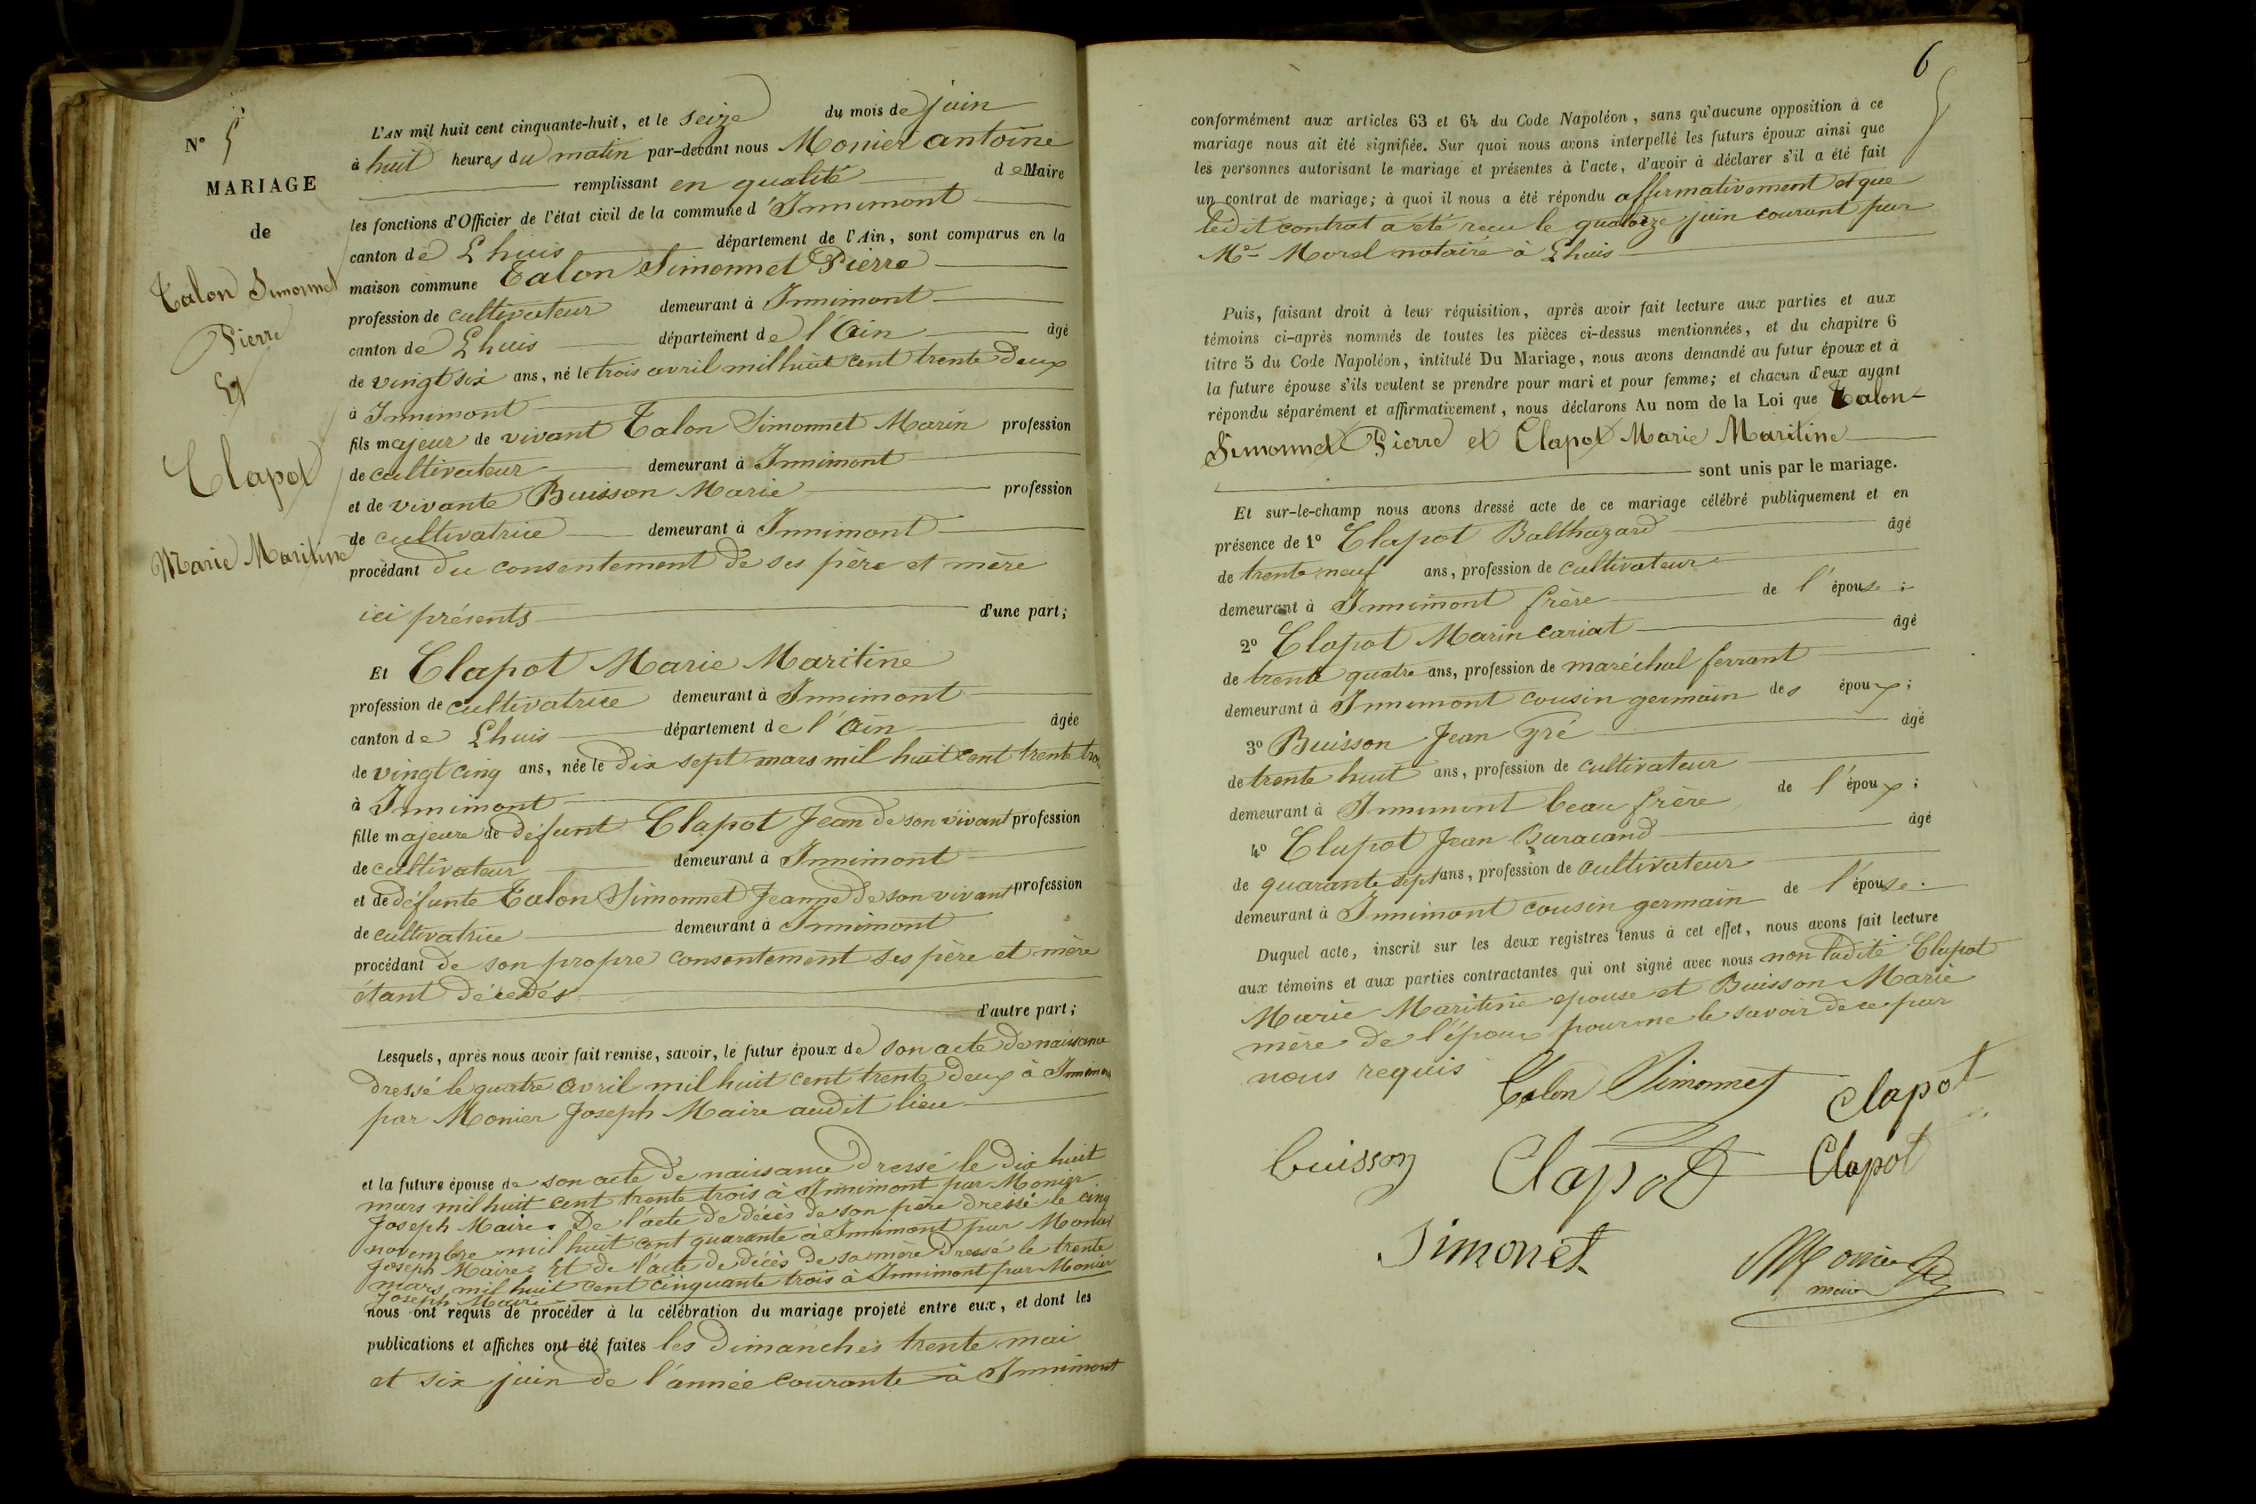 N° 5
MARIAGE
de
Talon Simonnet
Pierre
Et
Clapot
Marie Maritine
L'AN mil huit cent cinquante-huit, et le seize du mois de juin
à huit heures du matin par-devant nous Monier antoine
remplissant en qualité de Maire
les fonctions d'Officier de l'état civil de la commune d'Innimont
canton de Lhuis département de l'Ain, sont comparus en la
maison commune Talon Simonnet Pierre
profession de cultivateur demeurant à Innimont
canton de Lhuis département de l'Ain âgé
de vingt six ans, né le trois avril mil huit cent trente deux
à Innimont
fils majeur de vivant Talon Simonnet Marin profession
de cultivateur demeurant à Innimont
et de vivante Buisson Marie profession
de cultivatrice demeurant à Innimont
procédant du consentement de ses père et mère
ici présents d'une part;
Et Clapot Marie Maritine
profession de cultivatrice demeurant à Innimont
canton de Lhuis département de l'Ain âgée
de vingt cinq ans, née le dix sept mars mil huit cent trente trois
à Innimont
fille majeure de défunt Clapot Jean de son vivant profession
de cultivateur demeurant à Innimont
et de défunte Talon Simonnet Jeanne de son vivant profession
de cultivatrice demeurant à Innimont
procédant de son propre consentement ses père et mère
étant décedés
d'autre part;
Lesquels, après nous avoir fait remise, savoir, le futur époux de son acte de naissance
dressé le quatre avril mil huit cent trente deux à Innimont
par Monier Joseph Maire audit lieu
et la future épouse de son acte de naissance dressé le dix huit
mars mil huit cent trente trois à Innimont par Monier
Joseph Maire. De l'acte de décès de son père dressé le cinq
novembre mil huit cent quarante à Innimont par Monier
Joseph Maire. Et de l'acte de décès de sa mère dressé le trente
mars mil huit cent cinquante trois à Innimont par Monier
Joseph Maire
nous ont requis de procéder à la célébration du mariage projeté entre eux, et dont les
publications et affiches ont été faites les dimanches trente mai
et six juin de l'année courante à Innimont
6
conformément aux articles 63 et 64 du Code Napoléon, sans qu'aucune opposition à ce
mariage nous ait été signifiée. Sur quoi nous avons interpellé les futurs époux ainsi que
les personnes autorisant le mariage et présentes à l'acte, d'avoir à déclarer s'il a été fait
un contrat de mariage; à quoi il nous a été répondu affirmativement et que
ledit contrat a été recu le quatorze juin courant par
Me Morel notaire à Lhuis
Puis, faisant droit à leur réquisition, après avoir fait lecture aux parties et aux
témoins ci-après nommés de toutes les pièces ci-dessus mentionnées, et du chapitre 6
titre 5 du Code Napoléon, intitulé Du Mariage, nous avons demandé au futur époux et à
la future épouse s'ils veulent se prendre pour mari et pour femme; et chacun d'eux ayant
répondu séparément et affirmativement, nous déclarons Au nom de la Loi que Talon-
Simonnet Pierre et Clapot Marie Maritine
sont unis par le mariage.
Et sur-le-champ nous avons dressé acte de ce mariage célébré publiquement et en
présence de 1° Clapot Balthazard âgé
de trente neuf ans, profession de cultivateur
demeurant à Innimont frère de l'épouse;
2° Clapot Marin Cariat âgé
de trente quatre ans, profession de maréchal ferrant
demeurant à Innimont cousin germain des époux;
3° Buisson Jean Gré âgé
de trente huit ans, profession de cultivateur
demeurant à Innimont beau frère de l'époux;
4° Clapot Jean Baracand âgé
de quarante sept ans, profession de cultivateur
demeurant à Innimont cousin germain de l'épouse.
Duquel acte, inscrit sur les deux registres tenus à cet effet, nous avons fait lecture
aux témoins et aux parties contractantes qui ont signé avec nous non ladite Clapot
Marie Maritine epouse et Buisson Marie
mère de l'époux pour ne le savoir de ce par
nous requis
Talon Simonnet
Clapot
buisson
Clapot
Clapot
Simonet
Monier
maire